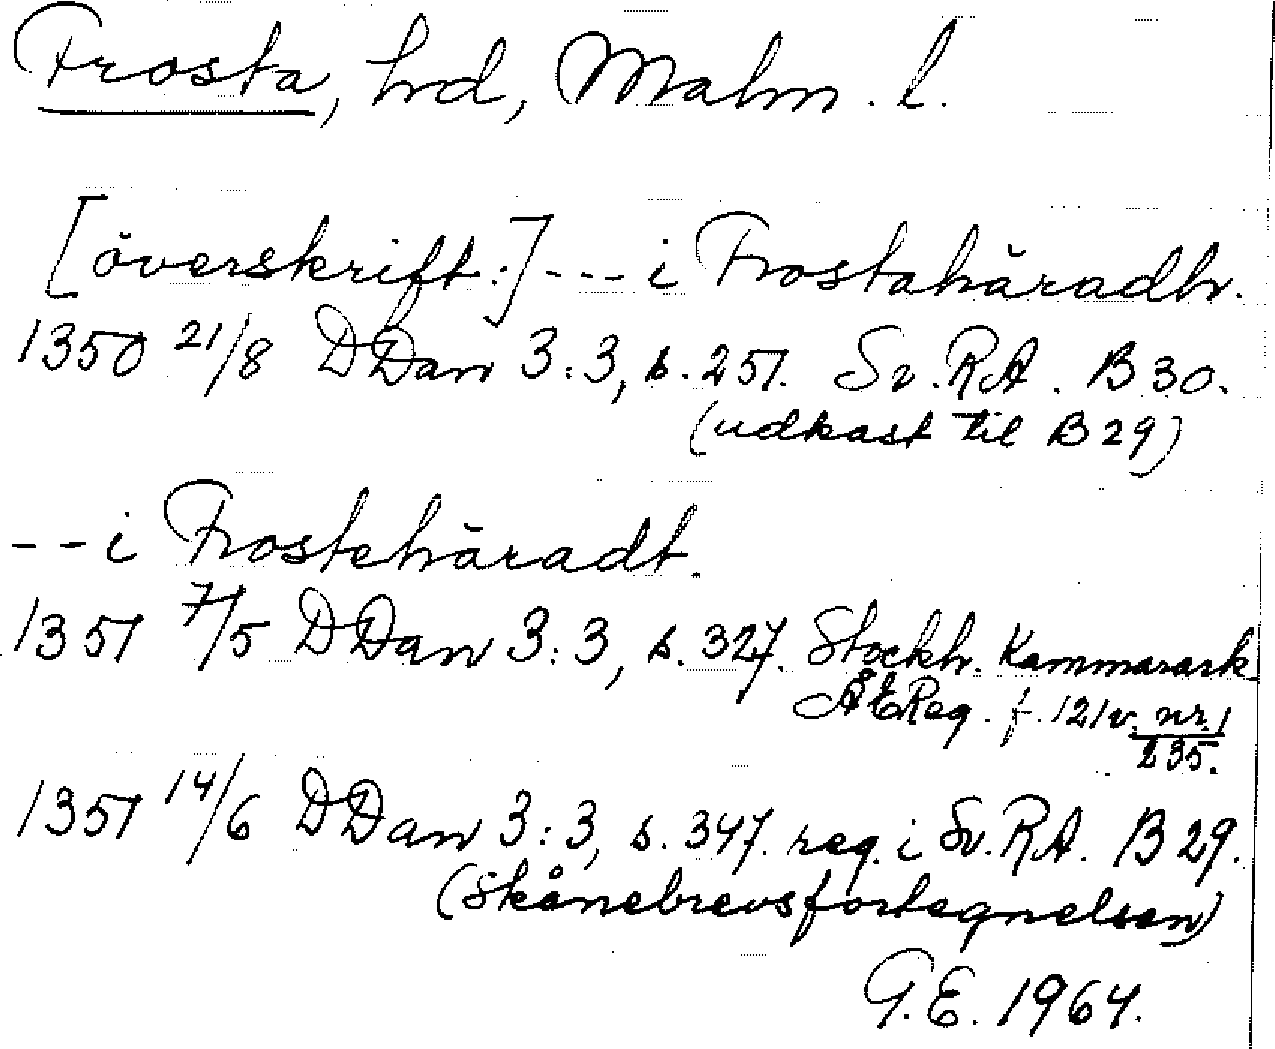 Frosta, hrd, Malm. l.
[överskrift:] --- i Frostahäradh.
1350 21/8 DDan 3:3, s. 251. Sv. RA. B 30.
(udkast til B 29)
-- i Frostehäradt.
1351 7/5 DDan 3:3, s. 327. Stockh. Kammarark
ÄEReg. f. 121v. nr. 1
235.
1351 14/6 DDan 3:3, s. 347. reg. i Sv. RA. B 29.
(Skånebrevsfortegnelsen)
G.E. 1964.